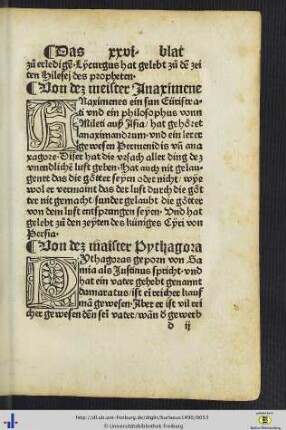 ¶Das xxvi· blat
zů erledigẽ· Lẏcurgus hat gelebt zů dẽ zei
ten Hilesej des propheten·
¶Von dez meister Anaximene
ANaximenes ein sun Eüristra-
ti vnd ein philosophus vonn
Mileti auß Asia/ hat gehöret
anaximandrum· vnd ein lerer
gewesen Permenidis vñ ana
xagore· Diser hat die vrsach aller ding dez
vnendlichẽ luft geben· Hat auch nit gelau-
genet das die götter seyen oder nicht/ wye
wol er vermaint das der luft durch die göt
ter nit gemacht/ sunder gelaubt die götter
von dem luft entsprungen seyen· Vnd hat
gelebt zů den zeyten des küniges Cyri von
Persia·
¶Von dez maister Pythagora
PYthagoras geporn von Sa
mia als Justinus spricht· vnd
hat ein vater gehebt genannt
damaratus/ ist ei reicher kauf
mã gewesen· Aber er ist vil rei
cher gewesen dẽn sei vater/ wan̄ d gewerb
d ij
http://dl.ub.uni-freiburg.de/diglit/burlaeus1490/0053
© Universitätsbibliothek Freiburg